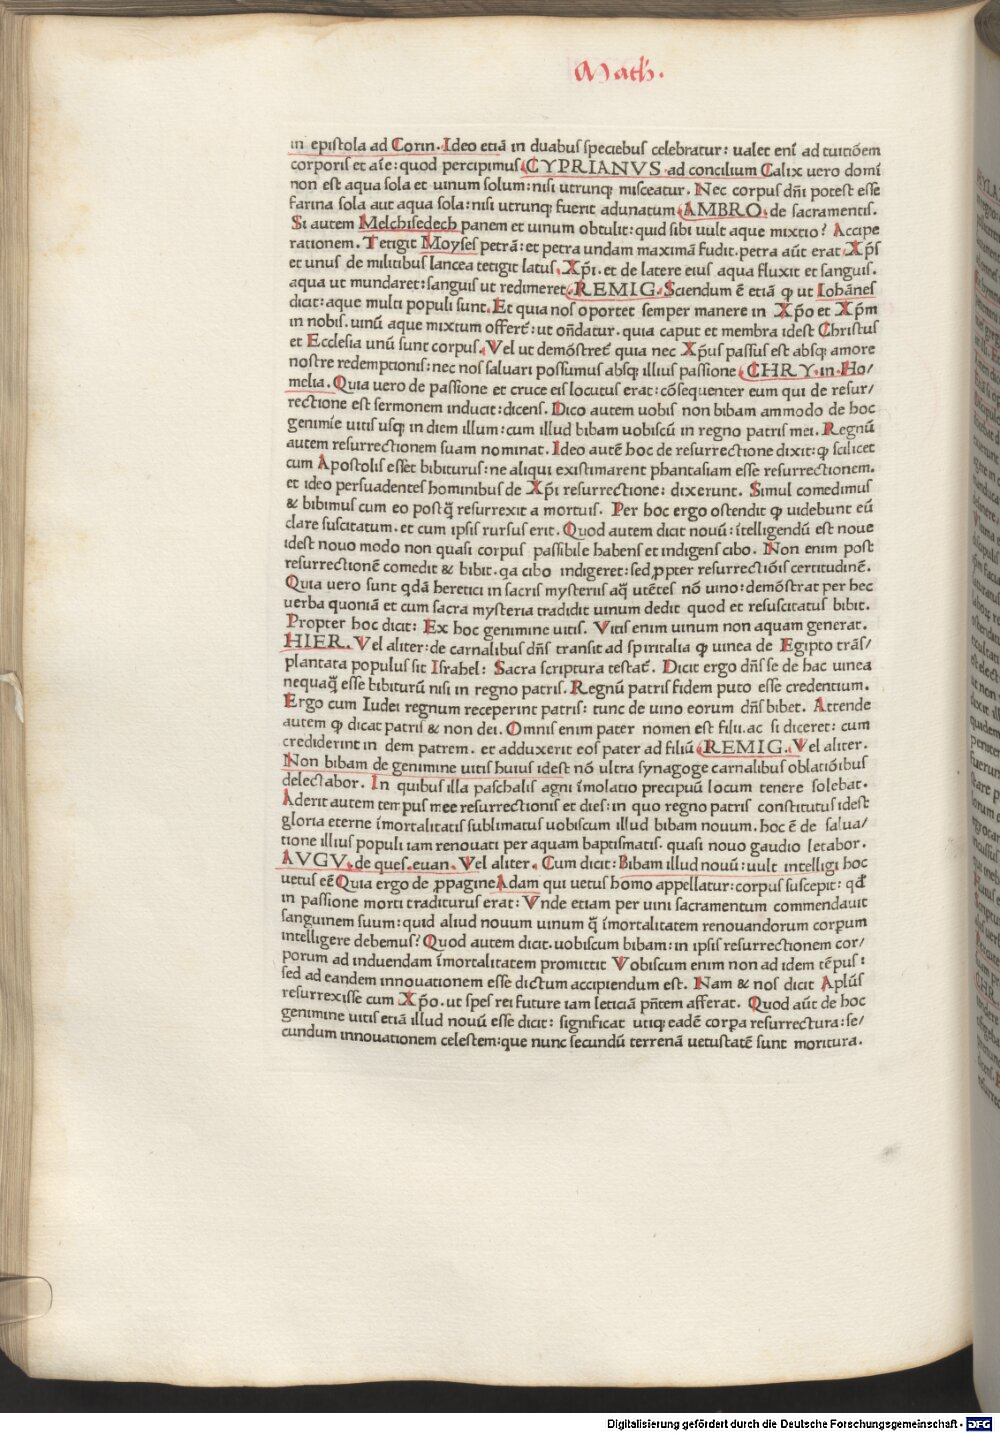 Math.
in epistola ad Corin. Ideo etiã in duabus speciebus celebratur: ualet enĩ ad tuitiõem
corporis et aĩe: quod percipimus CYPRIANVS ad concilium Calix uero domĩ
non est aqua sola et uinum solum: nisi utrunq; misceatur. Nec corpus dñi potest esse
farina sola aut aqua sola: nisi utrunq; fuerit adunatum AMBRO. de sacramentis.
Si autem Melchisedech panem et uinum obtulit: quid sibi uult aque mixtio? Accipe
rationem. Tetigit Moyses petrã: et petra undam maximã fudit. petra aũt erat Xp̃s
et unus de militibus lancea tetigit latus Xp̃i. et de latere eius aqua fluxit et sanguis.
aqua ut mundaret: sanguis ut redimeret REMIG. Sciendum ẽ etiã ꝙ ut Iohãnes
dicit: aque multi populi sunt. Et quia nos oportet semper manere in Xp̃o et Xp̃m
in nobis. uinũ aque mixtum offert᷑: ut oñdatur. quia caput et membra idest Christus
et Ecclesia unũ sunt corpus. Vel ut demõstret᷑ quia nec Xp̃us passus est absq; amore
nostre redemptionis: nec nos saluari possumus absq; illius passione CHRY. in Ho/
melia. Quia uero de passione et cruce eis locutus erat: cõsequenter eum qui de resur/
rectione est sermonem inducit: dicens. Dico autem uobis non bibam ammodo de hoc
genimĩe uitis usq; in diem illum: cum illud bibam uobiscũ in regno patris mei. Regnũ
autem resurrectionem suam nominat. Ideo autẽ hoc de resurrectione dixit: ꝙ scilicet
cum Apostolis esset bibiturus: ne aliqui existimarent phantasiam esse resurrectionem.
et ideo persuadentes hominibus de Xp̃i resurrectione: dixerunt. Simul comedimus
& bibimus cum eo postq̃ resurrexit a mortuis. Per hoc ergo ostendit ꝙ uidebunt eũ
clare suscitatum. et cum ipsis rursus erit. Quod autem dicit nouũ: ĩtelligendũ est noue
idest nouo modo non quasi corpus passibile habens et indigens cibo. Non enim post
resurrectionẽ comedit & bibit. qa cibo indigeret: sed ꝓpter resurrectiõis certitudinẽ.
Quia uero sunt qdã heretici in sacris mysteriis aq̃ utẽtes nõ uino: demõstrat per hec
uerba quoniã et cum sacra mysteria tradidit uinum dedit quod et resuscitatus bibit.
Propter hoc dicit: Ex hoc genimine uitis. Vitis enim uinum non aquam generat.
HIER. Vel aliter: de carnalibus dñs transit ad spiritalia ꝙ uinea de Egipto trãs/
plantata populus sit Israhel: Sacra scriptura testat᷑. Dicit ergo dñs se de hac uinea
nequaq̃ esse bibiturũ nisi in regno patris. Regnũ patris fidem puto esse credentium.
Ergo cum Iudei regnum receperint patris: tunc de uino eorum dñs bibet. Attende
autem ꝙ dicat patris & non dei. Omnis enim pater nomen est filii. ac si diceret: cum
crediderint in dem patrem. et adduxerit eos pater ad filiũ REMIG. Vel aliter.
Non bibam de genimine uitis huius idest nõ ultra synagoge carnalibus oblatiõibus
delectabor. In quibus illa paschalis agni ĩmolatio precipuũ locum tenere solebat.
Aderit autem tempus mee resurrectionis et dies: in quo regno patris constitutus idest
gloria eterne ĩmortalitatis sublimatus uobiscum illud bibam nouum. hoc ẽ de salua/
tione illius populi iam renouati per aquam baptismatis. quasi nouo gaudio letabor.
AVGV. de ques. euan. Vel aliter. Cum dicit: Bibam illud nouũ: uult intelligi hoc
uetus eẽ Quia ergo de ꝓpagine Adam qui uetus homo appellatur: corpus suscepit: qđ
in passione morti traditurus erat: Vnde etiam per uini sacramentum commendauit
sanguinem suum: quid aliud nouum uinum q̃ ĩmortalitatem renouandorum corpum
intelligere debemus? Quod autem dicit. uobiscum bibam: in ipsis resurrectionem cor/
porum ad induendam ĩmortalitatem promittit Vobiscum enim non ad idem tẽpus:
sed ad eandem innouationem esse dictum accipiendum est. Nam & nos dicit Apl̃us
resurrexisse cum Xp̃o. ut spes rei future iam leticiã pñtem afferat. Quod aũt de hoc
genimine uitis etiã illud nouũ esse dicit: significat utiq; eadẽ corpa resurrectura: se/
cundum innouationem celestem: que nunc secundũ terrenã uetustatẽ sunt moritura.
Digitalisierung gefördert durch die Deutsche Forschungsgemeinschaft - DFG